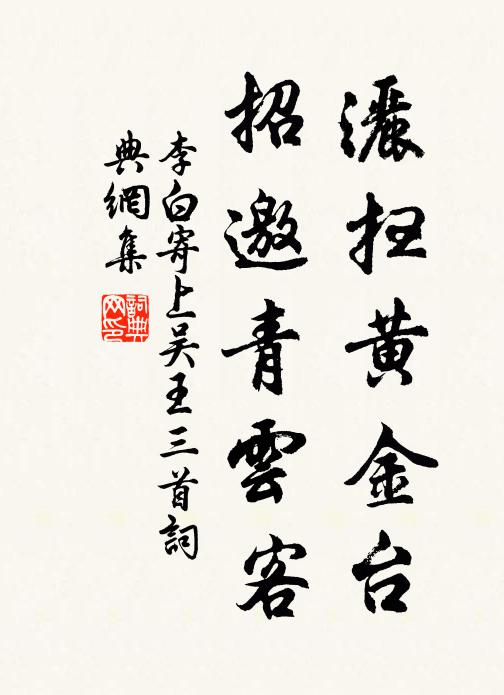 灑扫黄金台
招邀青雲客
李白寄上吴王三首詞
典網集
詞典网印